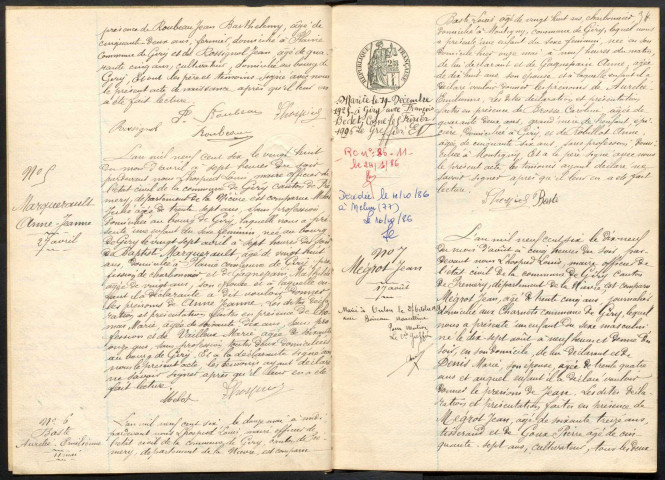 présence de Roubeau Jean Barthélemy, âgé de
cinquante deux ans, domicilié à
commune de Giry et de Rossignol Jean âgé de qua-
rante cinq ans, cultivateur, domicilié au bourg de
Giry,
le présent acte de naissance après qu'il leur en
a été fait lecture.
Roubeau
Rossignol
Roubeau
Lhospied
No 5
Marquerault
Anne Jeanne
27 avril
L'an mil neuf cent six le vingt huit
du mois d'avril à sept heures du soir
par devant nous Lhospied Louis, maire officier de
l'état civil de la commune de Giry canton de Pré-
mery, département de la Nièvre, est comparue
âgée de trente sept ans, sans profession
domiciliée au bourg de Giry, laquelle nous a pré-
senté une enfant du sexe féminin née au bourg
de Giry le vingt sept avril à sept heures du soir
de Baptiste Marquerault, âgé de vingt huit
ans, domicilié à commune de Giry, pro-
fession de charbonnier et de Gagnepain
âgée de vingt ans, son épouse et à laquelle en-
fant la déclarante a dit vouloir donner
les prénoms de Anne Jeanne. Les dites décla-
ration et présentation faites en présence de
Marie, âgée de soixante dix ans, sans pro-
fession et de Marie, âgée de
onze ans, sans profession toutes deux domiciliées
au bourg de Giry. Et a la déclarante signé avec
nous le présent acte, les témoins ayant déclaré
ne savoir signer après qu'il leur en a été
fait lecture.
Lhospied
No 6
Basle
Aurélie Emilienne
11 mai
L'an mil neuf cent six, le douze mai à
par devant nous Lhospied Louis, maire officier de
l'état civil de la commune de Giry, canton de Pré-
mery, département de la Nièvre, est comparu
RÉPUBLIQUE FRANÇAISE
Mariée le 19 Décembre
1925 à Giry avec François
le Greffier
RC N° 86-11
le 24/3/86
Décédée le 4/10/86
à Melun (77)
le 10/10/86
No 7
Mégrot Jean
17 août
Marié à
avec
Pour mention
Le Greffier
Basle Louis âgé de vingt huit ans, charbonnier
domicilié à Montigny, commune de Giry, lequel nous
a présenté une enfant du sexe féminin, née en son
domicile, le onze mai à neuf heures du matin,
de lui déclarant et de Gagnepain Anne, âgée
de dix huit ans son épouse et à laquelle enfant il a
déclaré vouloir donner les prénoms de Aurélie
Emilienne. Les dites déclaration et présentation
faites en présence de âgée de
quarante deux ans, grand mère de l'enfant,
domiciliée à Giry et de
âgée de cinquante six ans, sans profession, domi-
ciliée à Montigny. Et a le père signé avec nous
le présent acte les témoins ayant déclaré ne
savoir signer après qu'il leur en a été fait
lecture.
Lhospied Basle
L'an mil neuf cent six, le dix neuf
du mois d'août à cinq heures du soir, par
devant nous Lhospied Louis, maire, officier de
l'état civil de la commune de Giry canton
de Prémery, département de la Nièvre est comparu
Mégrot Jean, âgé de trente cinq ans, journalier
domicilié aux Charnots commune de Giry, lequel
nous a présenté un enfant du sexe masculin
né le dix sept août à neuf heures et demie du
soir, en son domicile, de lui déclarant et de
Denis Marie, son épouse, âgée de trente quatre
ans et auquel enfant il a déclaré vouloir
donner le prénom de Jean. Les dites décla-
ration et présentation, faites en présence de
Mégrot Jean, âgé de soixante treize ans,
tisserand et de Pierre âgé de cin-
quante sept ans, cultivateur, tous les deux